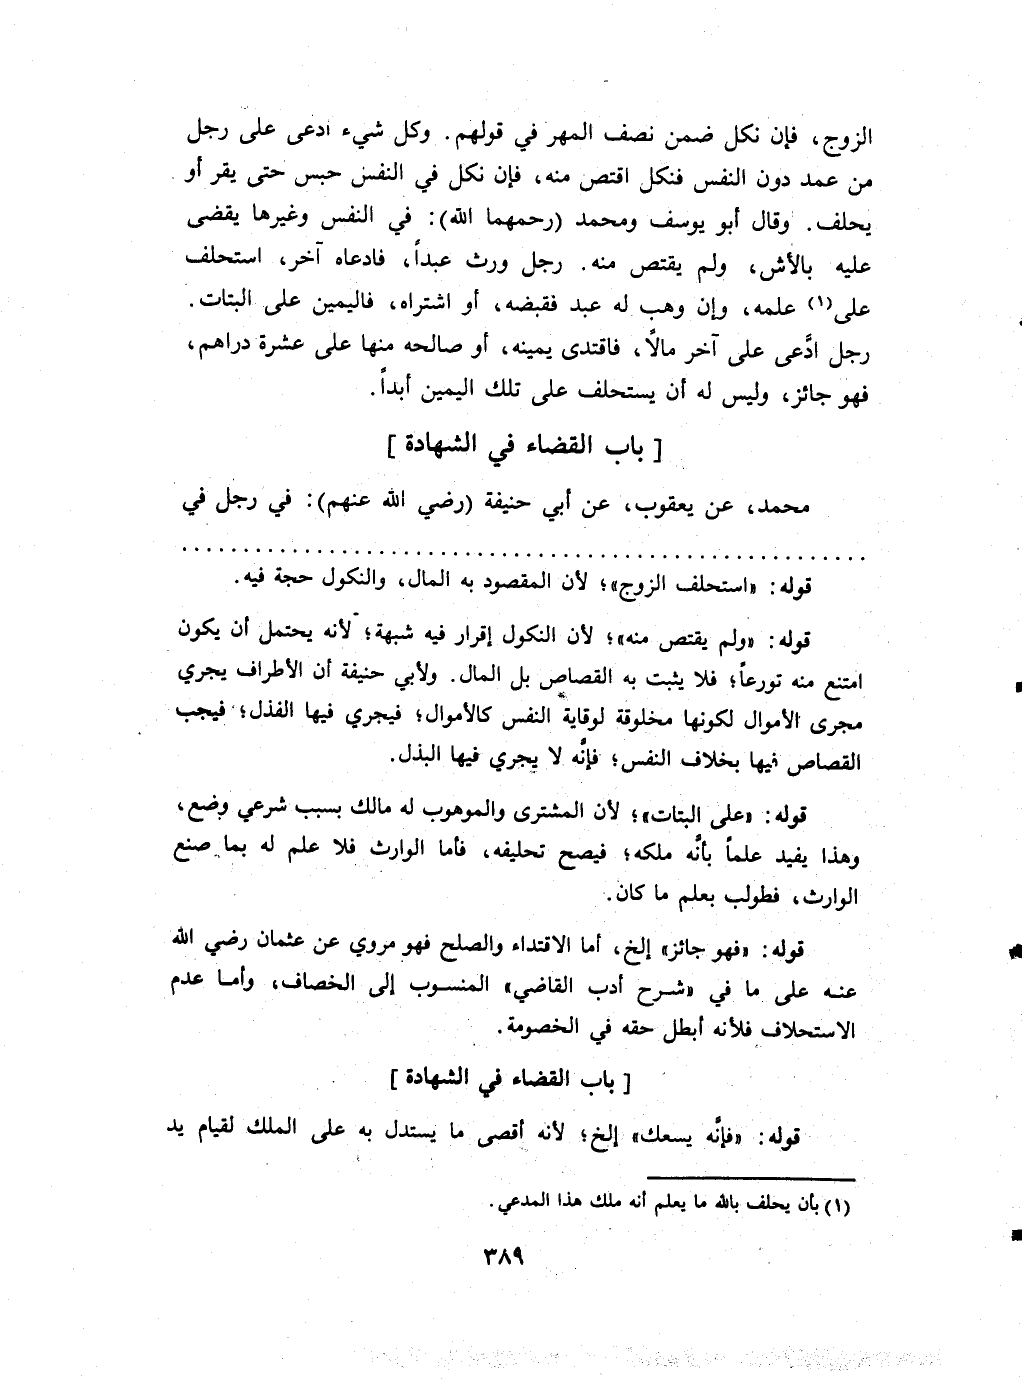 الزوج، فإن نكل ضمن نصف المهر في قولهم. وكل شيء ادعى على رجل
من عمد دون النفس فنكل اقتص منه، فإن نكل في النفس حبس حتى يقر أو
يحلف. وقال أبو يوسف ومحمد (رحمهما الله): في النفس وغيرها يقضى
عليه بالأش، ولم يقتص منه. رجل ورث عبداً، فادعاه آخر، استحلف
على(١) علمه، وإن وهب له عبد فقبضه، أو اشتراه، فاليمين على البتات.
رجل ادَّعى على آخر مالًا، فاقتدى يمينه، أو صالحه منها على عشرة دراهم،
فهو جائز، وليس له أن يستحلف على تلك اليمين أبداً.
[ باب القضاء في الشهادة ]
محمد، عن يعقوب، عن أبي حنيفة (رضي الله عنهم): في رجل في
قوله: «استحلف الزوج»؛ لأن المقصود به المال، والنكول حجة فيه.
قوله: «ولم يقتص منه»؛ لأن النكول إقرار فيه شبهة؛ لأنه يحتمل أن يكون
امتنع منه تورعاً؛ فلا يثبت به القصاص بل المال. ولأبي حنيفة أن الأطراف يجري
مجرى الأموال لكونها مخلوقة لوقاية النفس كالأموال؛ فيجري فيها الفذل؛ فيجب
القصاص فيها بخلاف النفس؛ فإنَّه لا يجري فيها البذل.
قوله: «على البتات»؛ لأن المشترى والموهوب له مالك بسبب شرعي وضع،
وهذا يفيد علماً بأنَّه ملكه؛ فيصح تحليفه، فأما الوارث فلا علم له بما صنع
الوارث، فطولب بعلم ما كان.
قوله: «فهو جائز» إلخ، أما الاقتداء والصلح فهو مروي عن عثمان رضي الله
عنه على ما في «شرح أدب القاضي» المنسوب إلى الخصاف، وأما عدم
الاستحلاف فلأنه أبطل حقه في الخصومة.
[ باب القضاء في الشهادة ]
قوله: «فإنَّه يسعك» إلخ؛ لأنه أقصى ما يستدل به على الملك لقيام يد
(١) بأن يحلف بالله ما يعلم أنه ملك هذا المدعي.
٣٨٩